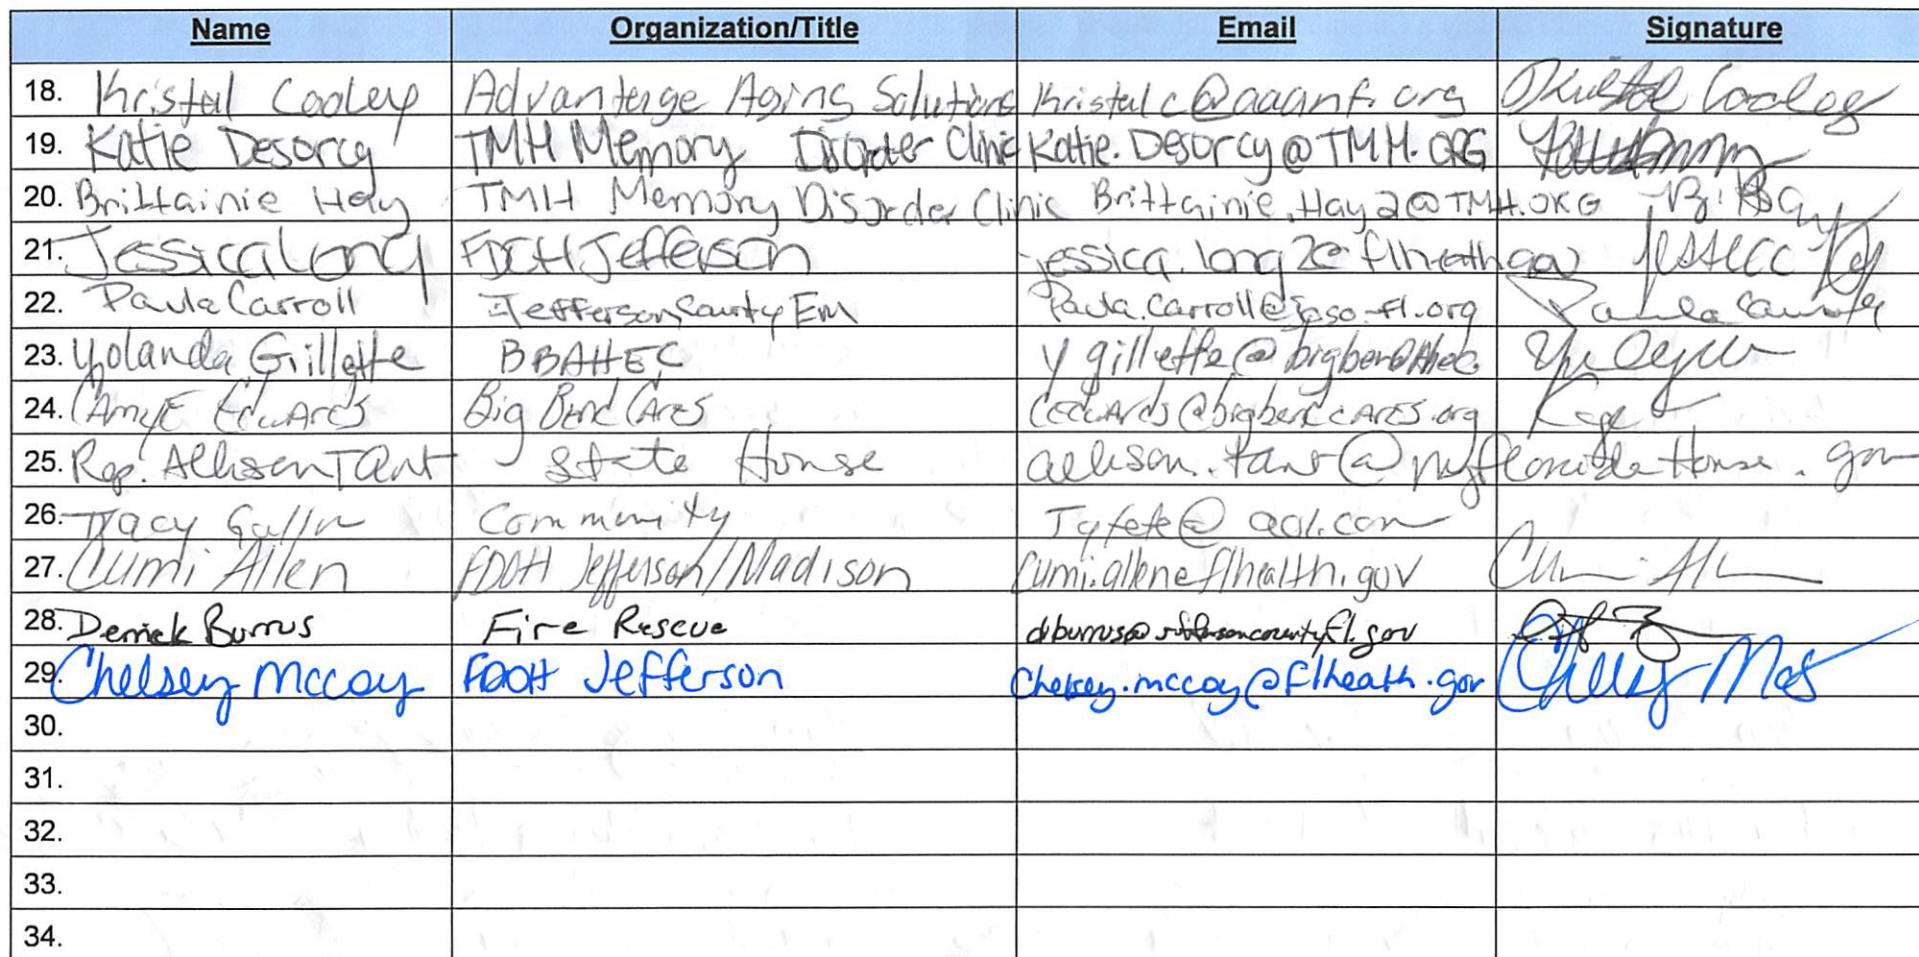 Name Organization/Title Email Signature
18. Kristal Cooley Advantage Aging Solutions kristalc@aaanf.org Kristal Cooley
19. Katie Desorcy TMH Memory Disorder Clinic Katie.Desorcy@TMH.ORG
20. Brittainie Hay TMH Memory Disorder Clinic Brittainie.Hay2@TMH.ORG
21. Jessica Long FDOH Jefferson jessica.long2@flhealth.gov
22. Paula Carroll Jefferson County EM Paula.Carroll@jcso-fl.org Paula Carroll
23. Yolanda Gillette BBAHEC ygillette@bigbendahec
24. Big Bend Cares cedwards@bigbendcares.org
25. Rep. Allison Tant State House allison.tant@myfloridahouse.gov
26. Tracy Community Tgfefe@aol.com
27. Cumi Allen FDOH Jefferson/Madison cumi.allen@flhealth.gov
28. Derrick Burrus Fire Rescue
29. Chelsey McCoy FDOH Jefferson Chelsey.mccoy@flheath.gov
30.
31.
32.
33.
34.